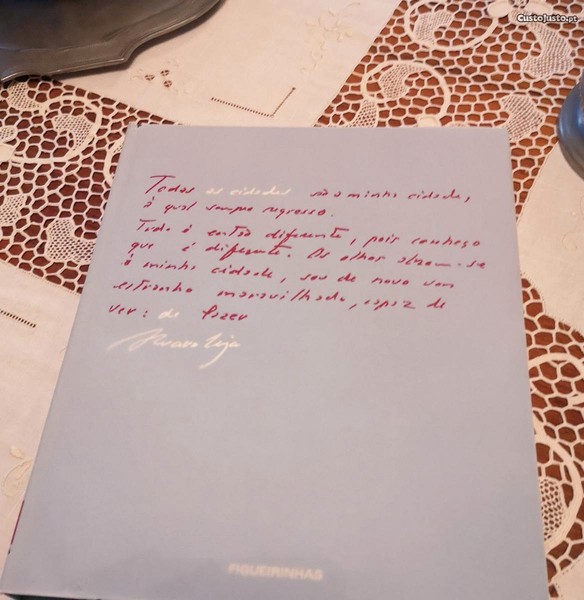 CustoJusto.pt
Todas as cidades são a minha cidade,
à qual sempre regresso.
Tudo é então diferente, pois conheço
que é diferente. Os olhos abrem-se
à minha cidade, sou de novo um
estranho maravilhado, capaz de
ver: de fazer
Alvaro Siza
FIGUEIRINHAS